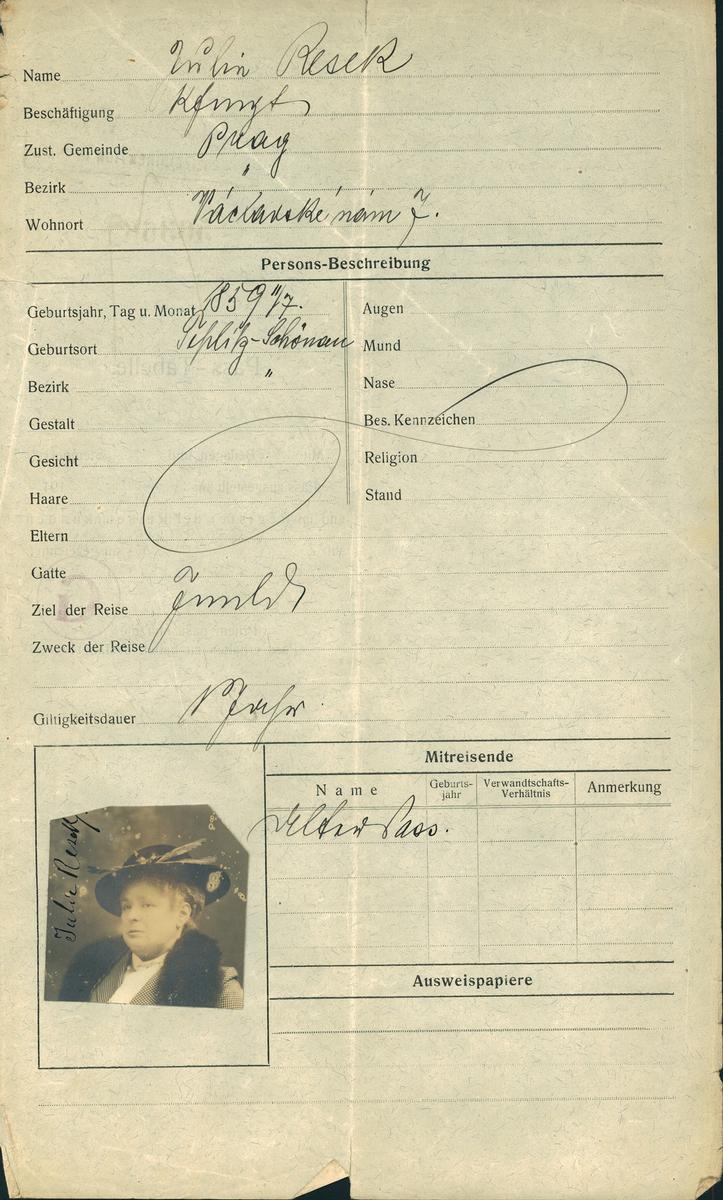 Name Julie Resek
Beschäftigung
Zust. Gemeinde Prag
Bezirk "
Wohnort Václavské nám 7.
Persons-Beschreibung
Geburtsjahr, Tag u. Monat 1859 11/7.
Geburtsort Teplitz-Schönau
Bezirk "
Gestalt
Gesicht
Haare
Eltern
Gatte
Ziel der Reise
Zweck der Reise
Giltigkeitsdauer 1 Jahr
Augen
Mund
Nase
Bes. Kennzeichen
Religion
Stand
Julie Resek
Mitreisende
Name Geburts-jahr Verwandtschafts-Verhältnis Anmerkung
Alter Pass.
Ausweispapiere